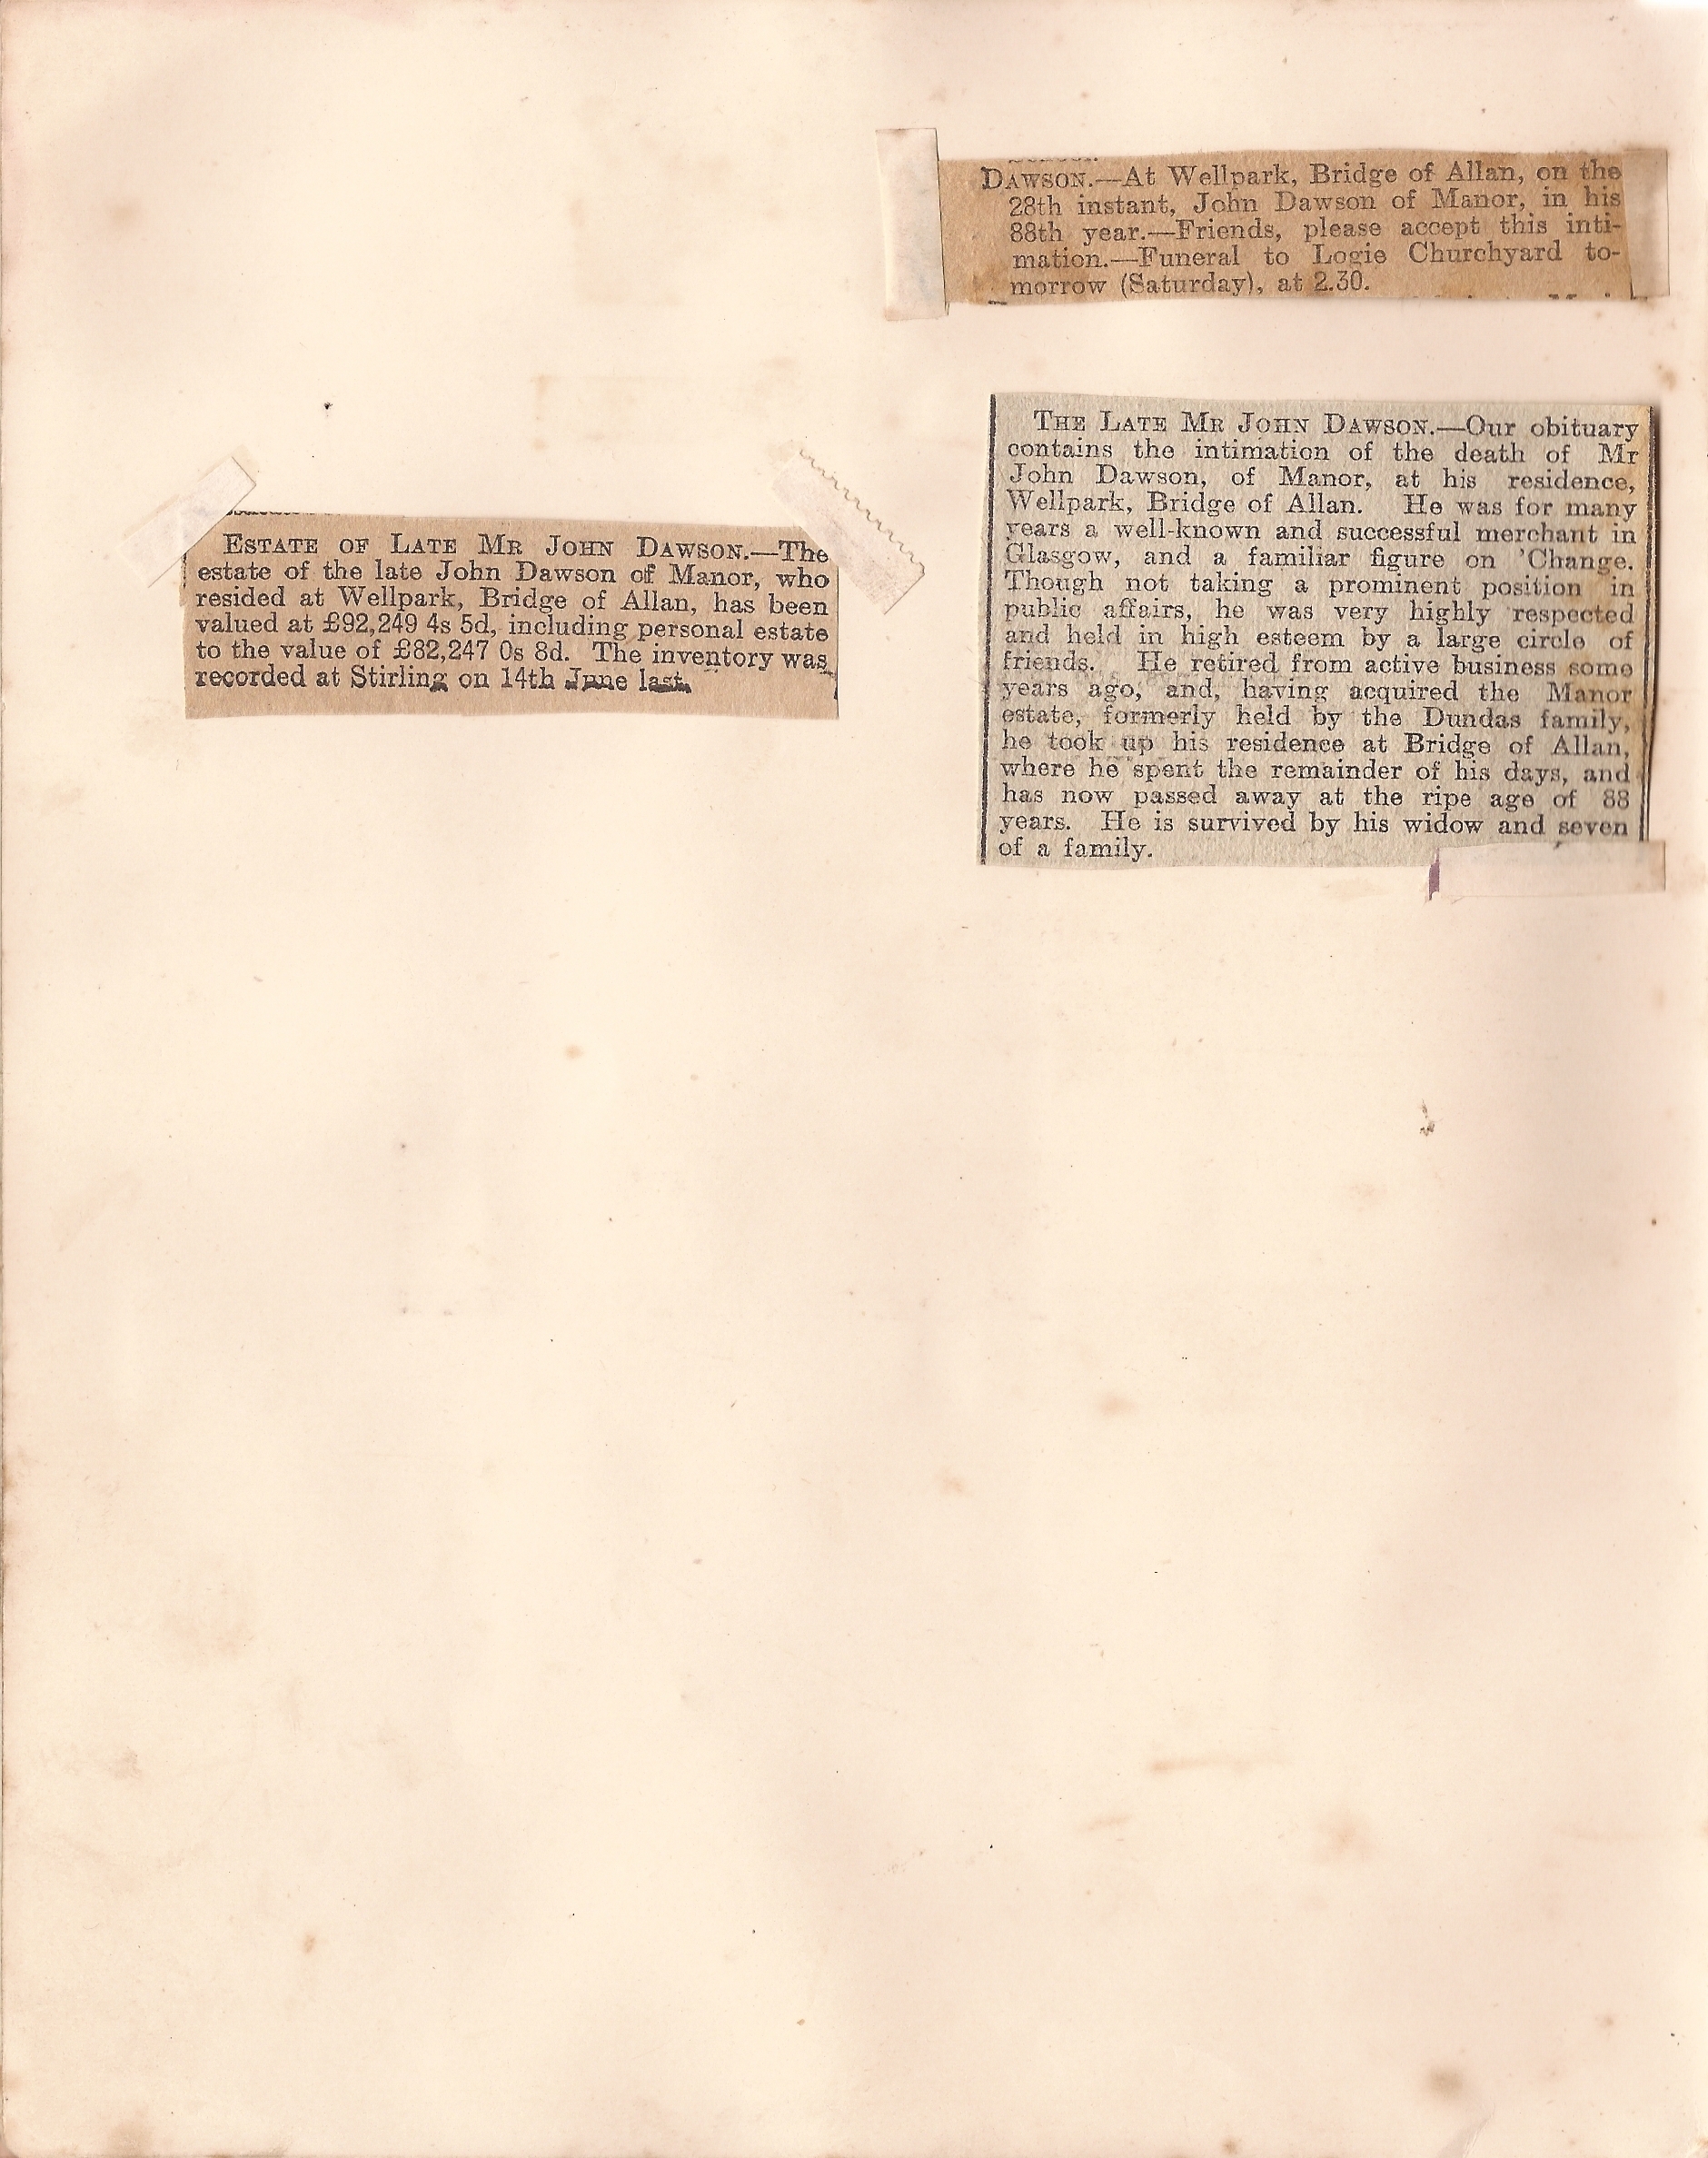 DAWSON.—At Wellpark, Bridge of Allan, on the
28th instant, John Dawson of Manor, in his
88th year.—Friends, please accept this inti-
mation.—Funeral to Logie Churchyard to-
morrow (Saturday), at 2.30.
THE LATE MR JOHN DAWSON.—Our obituary
contains the intimation of the death of Mr
John Dawson, of Manor, at his residence,
Wellpark, Bridge of Allan. He was for many
years a well-known and successful merchant in
Glasgow, and a familiar figure on 'Change.
Though not taking a prominent position in
public affairs, he was very highly respected
and held in high esteem by a large circle of
friends. He retired from active business some
years ago, and, having acquired the Manor
estate, formerly held by the Dundas family,
he took up his residence at Bridge of Allan,
where he spent the remainder of his days, and
has now passed away at the ripe age of 88
years. He is survived by his widow and seven
of a family.
ESTATE OF LATE MR JOHN DAWSON.—The
estate of the late John Dawson of Manor, who
resided at Wellpark, Bridge of Allan, has been
valued at £92,249 4s 5d, including personal estate
to the value of £82,247 0s 8d. The inventory was
recorded at Stirling on 14th June last.